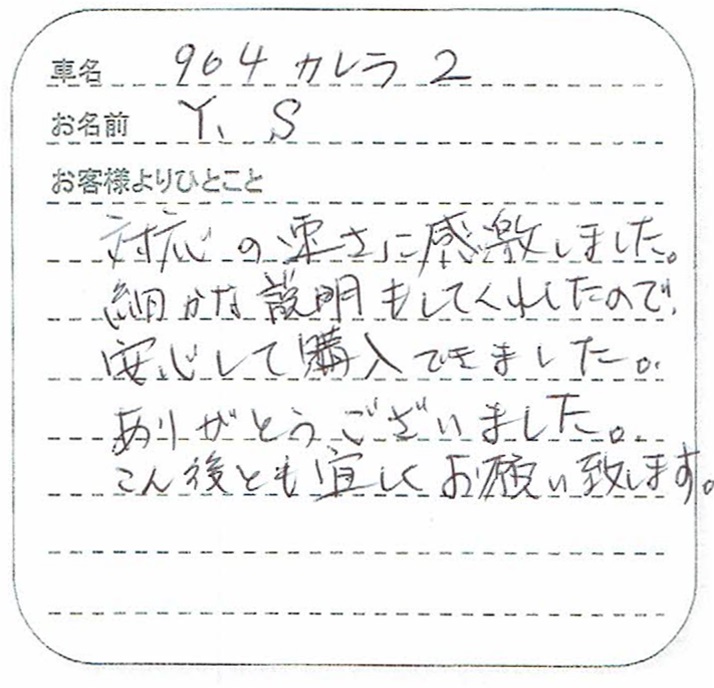 車名 964 カレラ 2
お名前 Y、S
お客様よりひとこと
対応の速さに感激しました。
細かな説明もしてくれしたので、
安心して購入できました。
ありがとうございました。
こん後とも宜しくお願い致します。